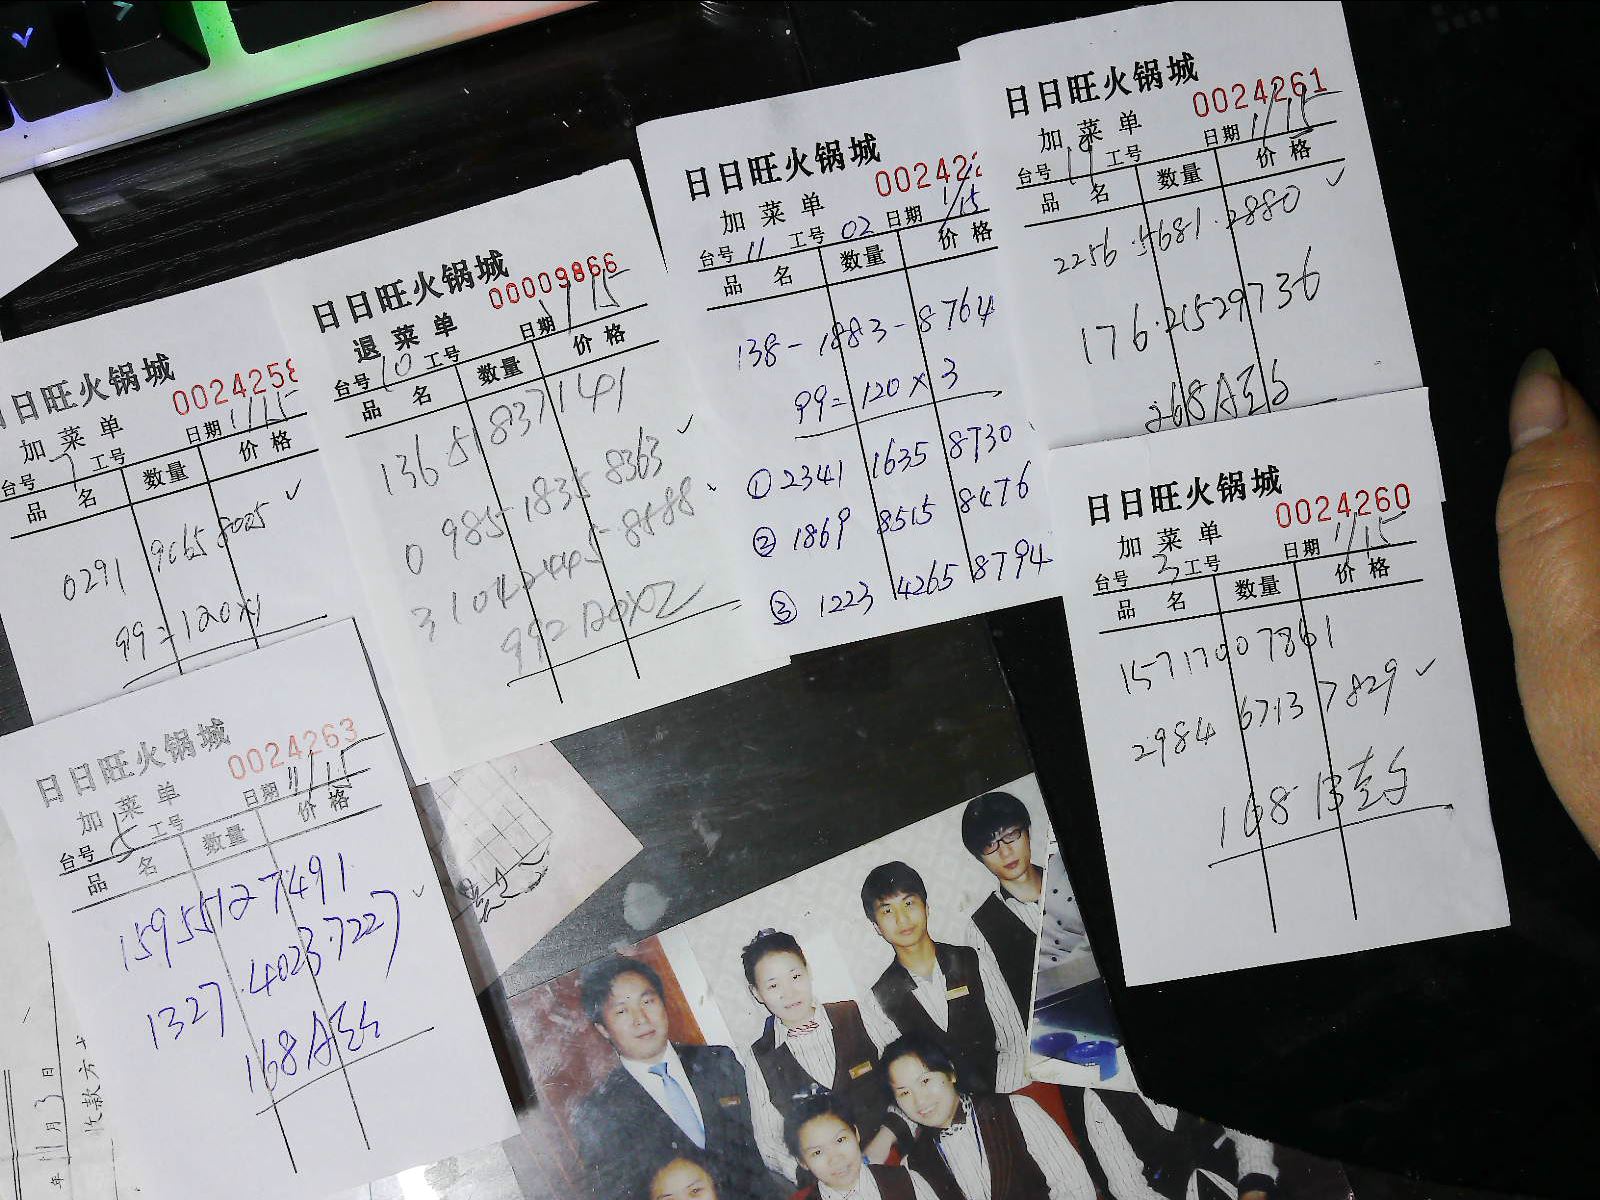 日日旺火锅城
0024258
加菜单 日期 1/15
台号 7 工号
品名 数量 价格
0291 9065 8005 ✓
99=120×1
日日旺火锅城
00009866
退菜单 日期 1/15
台号 10 工号
品名 数量 价格
136 51837141
0 985-1835 8363 ✓
3104 2445-8588
99=120×2
日日旺火锅城
002422
加菜单
台号 11 工号 02 日期 1/15
品名 数量 价格
138-1883-8764
99=120×3
①2341 1635 8730
②1869 8515 8476
③1223 4265 8794
日日旺火锅城
0024261
加菜单 日期 1/15
台号 19 工号
品名 数量 价格
2256.4681.2880 ✓
176.21529736
日日旺火锅城
0024260
加菜单 日期 1/15
台号 3 工号
品名 数量 价格
15717007861
2984 6713 7829 ✓
日日旺火锅城
0024263
加菜单 日期 11/15
台号 5 工号
品名 数量 价格
15955127491
1327.4023.7227 ✓
年11月3日
收款方式